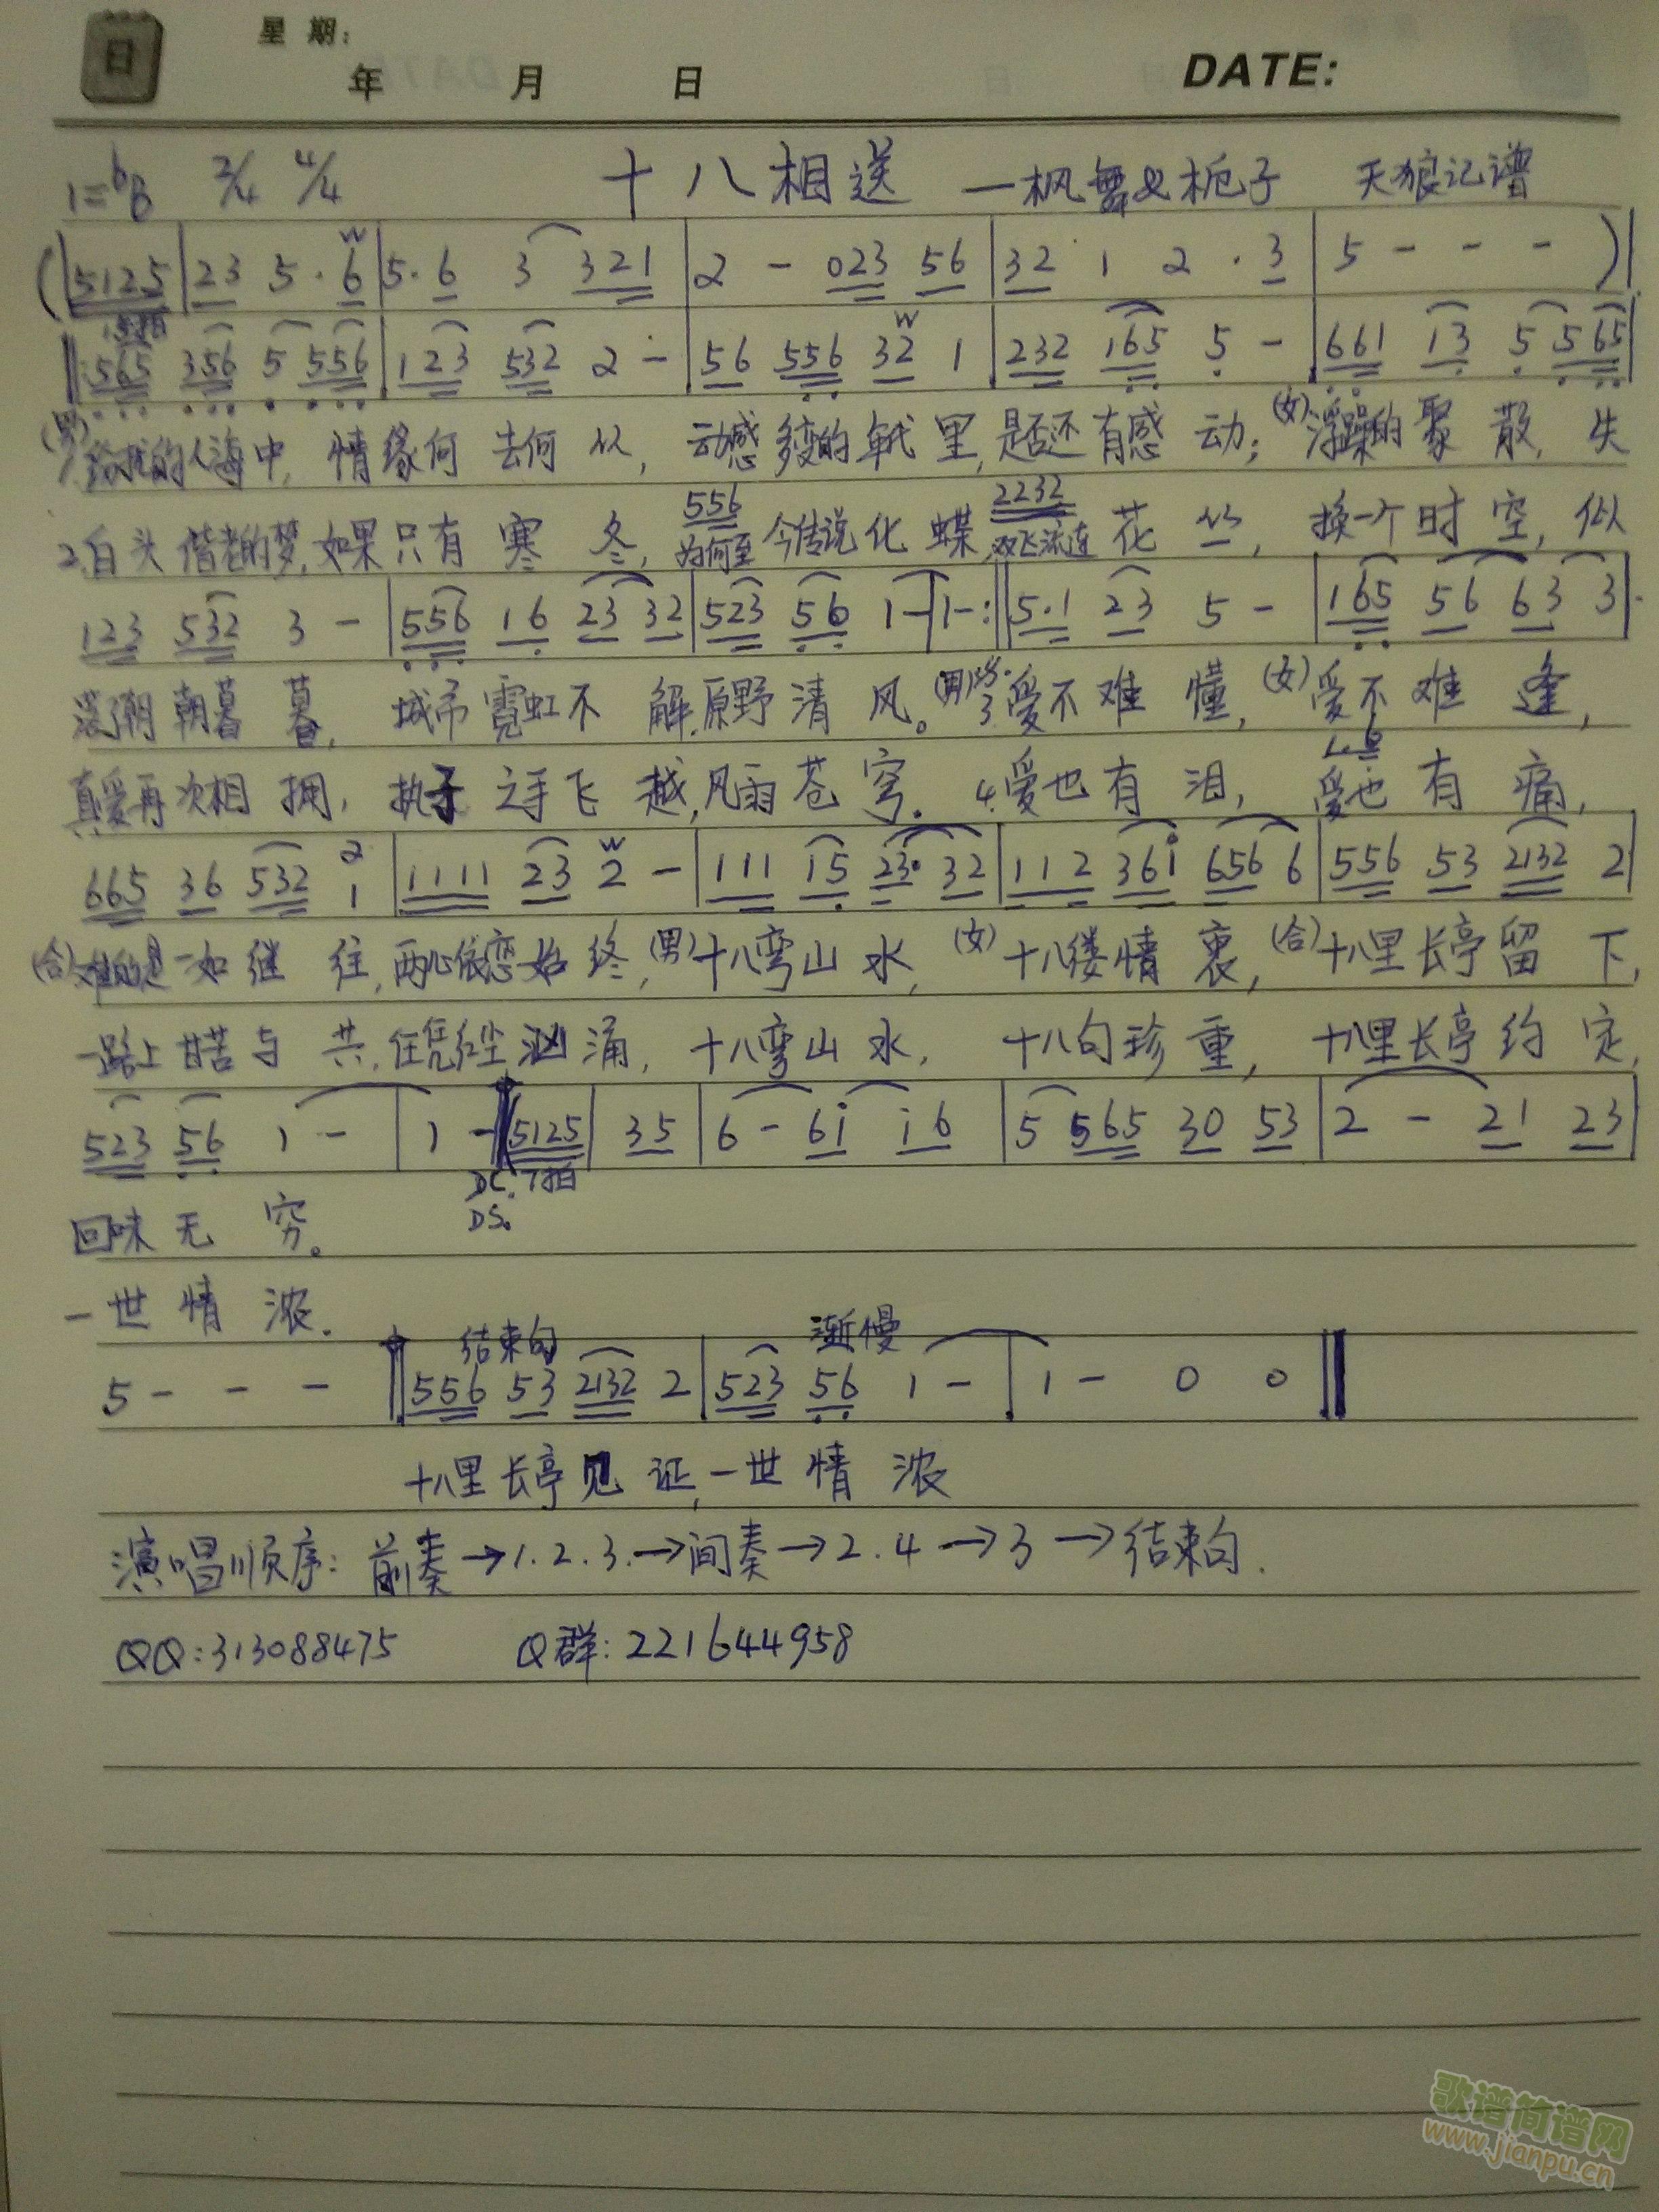 日 星期:
年 月 日 DATE:
1=bB 2/4 4/4 十八相送 —枫舞&栀子 天狼记谱
(|5125|23 5·6|5·6 3 321|2 - 023 56|32 1 2·3|5 - - -)|
‖:565 356 5 556|123 532 2 -|56 556 32 1|232 165 5 -|661 13 5 565|
(男) 的人海中, 情缘何去何从, 动感多变的年代里, 是否还有感动; (女)浮躁的聚散, 失
556 2232
2.白头偕老的梦, 如果只有寒冬, 为何至今传说化蝶, 双飞流连花丛, 换一个时空, 似
123 532 3 -|556 16 23 32|523 56 1 -|1 -:‖5·1 23 5 -|165 56 63 3|
落了朝朝暮暮, 城市霓虹不解, 原野清风。(男) 3.爱不难懂, (女)爱不难逢,
1·6
真爱再次相拥, 执子之手飞越, 风雨苍穹. 4.爱也有泪, 爱也有痛,
665 36 532 2 1|1111 23 2 -|111 15 23· 32|112 361 656 6|556 53 2132 2|
(合)难的是一如继往, 两心依恋始终, (男)十八弯山水, (女)十八缕情衷, (合)十八里长亭留下,
一路上甘苦与共, 任凭红尘汹涌, 十八弯山水, 十八句珍重, 十八里长亭约定,
523 56 1 -|1 -‖(5125|35|6 - 61 16|5 565 30 53|2 - 21 23|
DC. 7拍
DS.
回味无穷。
一世情浓.
结束句 渐慢
5 - - -‖556 53 2132 2|523 56 1 -|1 - 0 0‖
十八里长亭见证, 一世情浓
演唱顺序: 前奏→1.2.3.→间奏→2.4→3→结束句.
QQ:313088475 Q群:221644958
歌谱简谱网
www.jianpu.cn